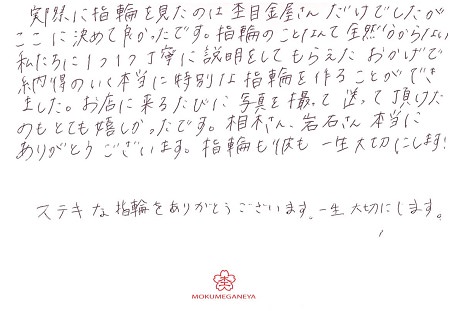 実際に指輪を見たのは杢目金屋さんだけでしたが
ここに決めて良かったです。指輪のことなんて全然分からない
私たちに1つ1つ丁寧に説明をしてもらえたおかげで
納得のいく本当に特別な指輪を作ることができ
ました。お店に来るたびに写真を撮って送って頂けた
のもとても嬉しかったです。相木さん、岩石さん本当に
ありがとうございます。指輪も彼も一生大切にします!
ステキな指輪をありがとうございます。一生大切にします。
MOKUMEGANEYA